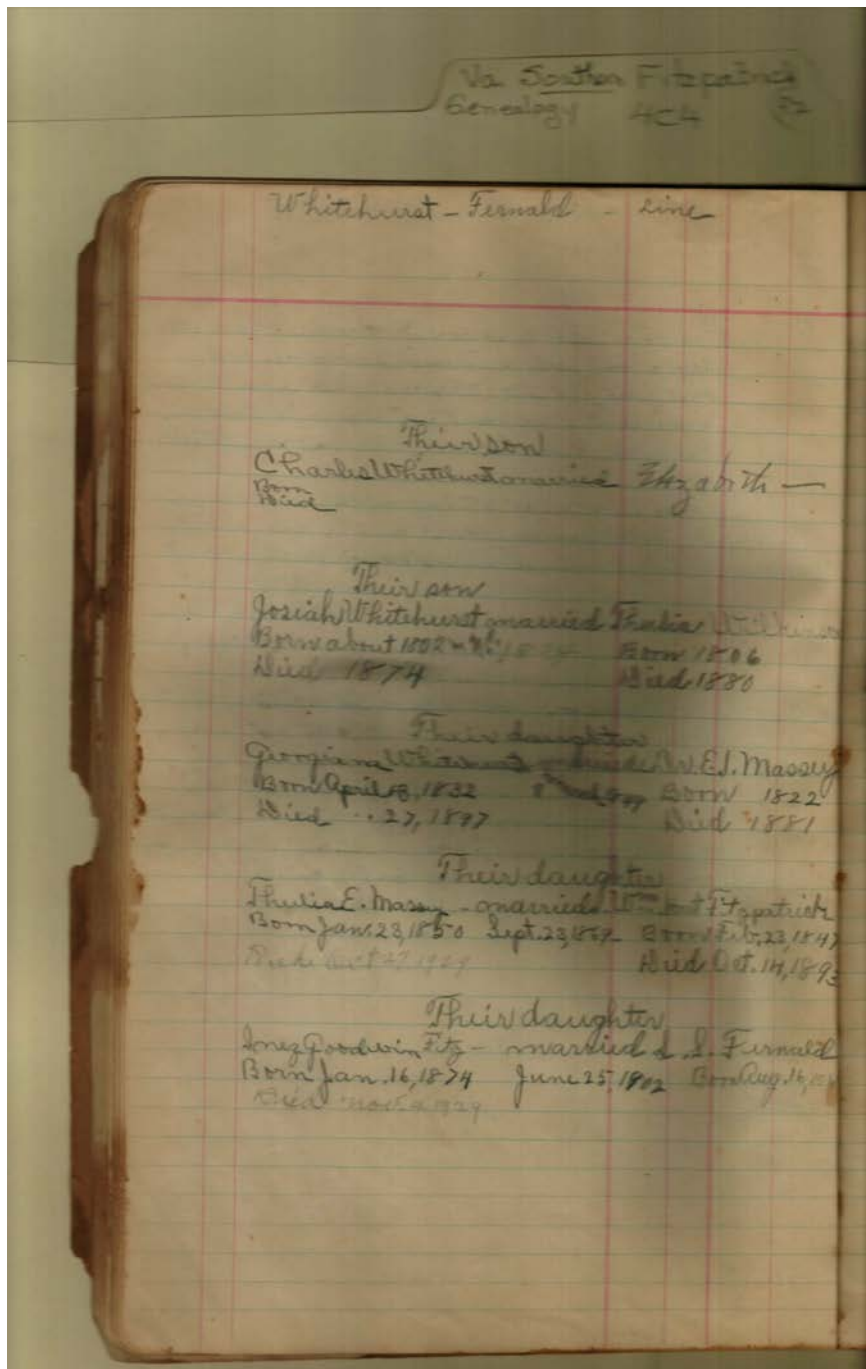 Va Southern Fitzpatrick
Genealogy 4C4
Whitehurst - Fernald - Line
Their son
Charles Whitehurst married Elizabeth —
Born
Died
Their son
Josiah Whitehurst married Thulia
Born about 1802 Born 1806
Died 1874 Died 1880
Their daughter
Georgiana Whitehurst Dr. E.S. Massey
Born April 18, 1832 Born 1822
Died 27, 1897 Died 1881
Their daughter
Thulia E. Massey - married Fitzpatrick
Born Jan. 23, 1850 Sept. 23, 1869 Born Feb. 23, 1847
Died Oct. 14, 1893
Their daughter
Inez Goodwin Fitz - married L. S. Fernald
Born Jan. 16, 1874 June 25, 1902 Born Aug. 16,
Died Nov.